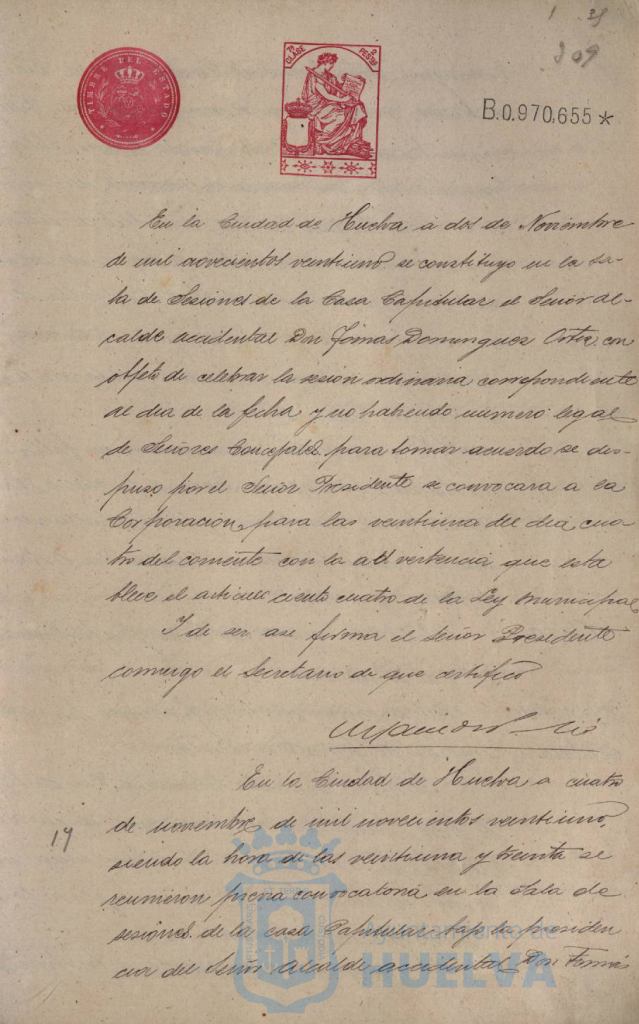 309
TIMBRE DEL ESTADO
7ª CLASE
2 PESETAS
B.0.970,655*
En la Ciudad de Huelva a dos de Noviembre
de mil novecientos veintiuno se constituyo en la sa-
la de Sesiones de la Casa Capitular el Señor al-
calde accidental Don Tomás Dominguez Ortiz con
objeto de celebrar la sesion ordinaria correspondiente
al dia de la fecha y no habiendo número legal
de Señores Concejales para tomar acuerdo se dis-
puso por el Señor Presidente se convocara a la
Corporacion, para las veintiuna del dia cua-
tro del corriente con la advertencia que esta
blece el articulo ciento cuatro de la Ley Municipal
I de ser asi firma el Señor Presidente
conmigo el Secretario de que certifico
En la Ciudad de Huelva a cuatro
de noviembre de mil novecientos veintiuno,
siendo la hora de las veintiuna y treinta se
reunieron previa convocatoria en la Sala de
sesiones de la casa Capitular bajo la presiden
cia del Señor Alcalde accidental Don Tomás
Ayuntamiento de
HUELVA